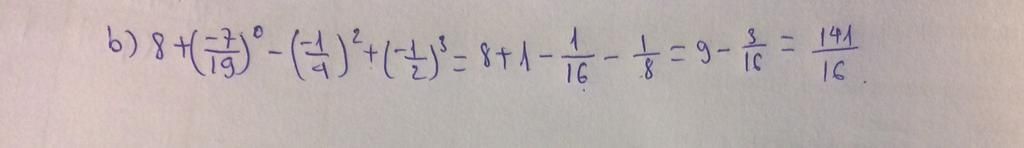 b) 8 + (-7/19)^0 - (-1/4)^2 + (-1/2)^3 = 8 + 1 - 1/16 - 1/8 = 9 - 3/16 = 141/16